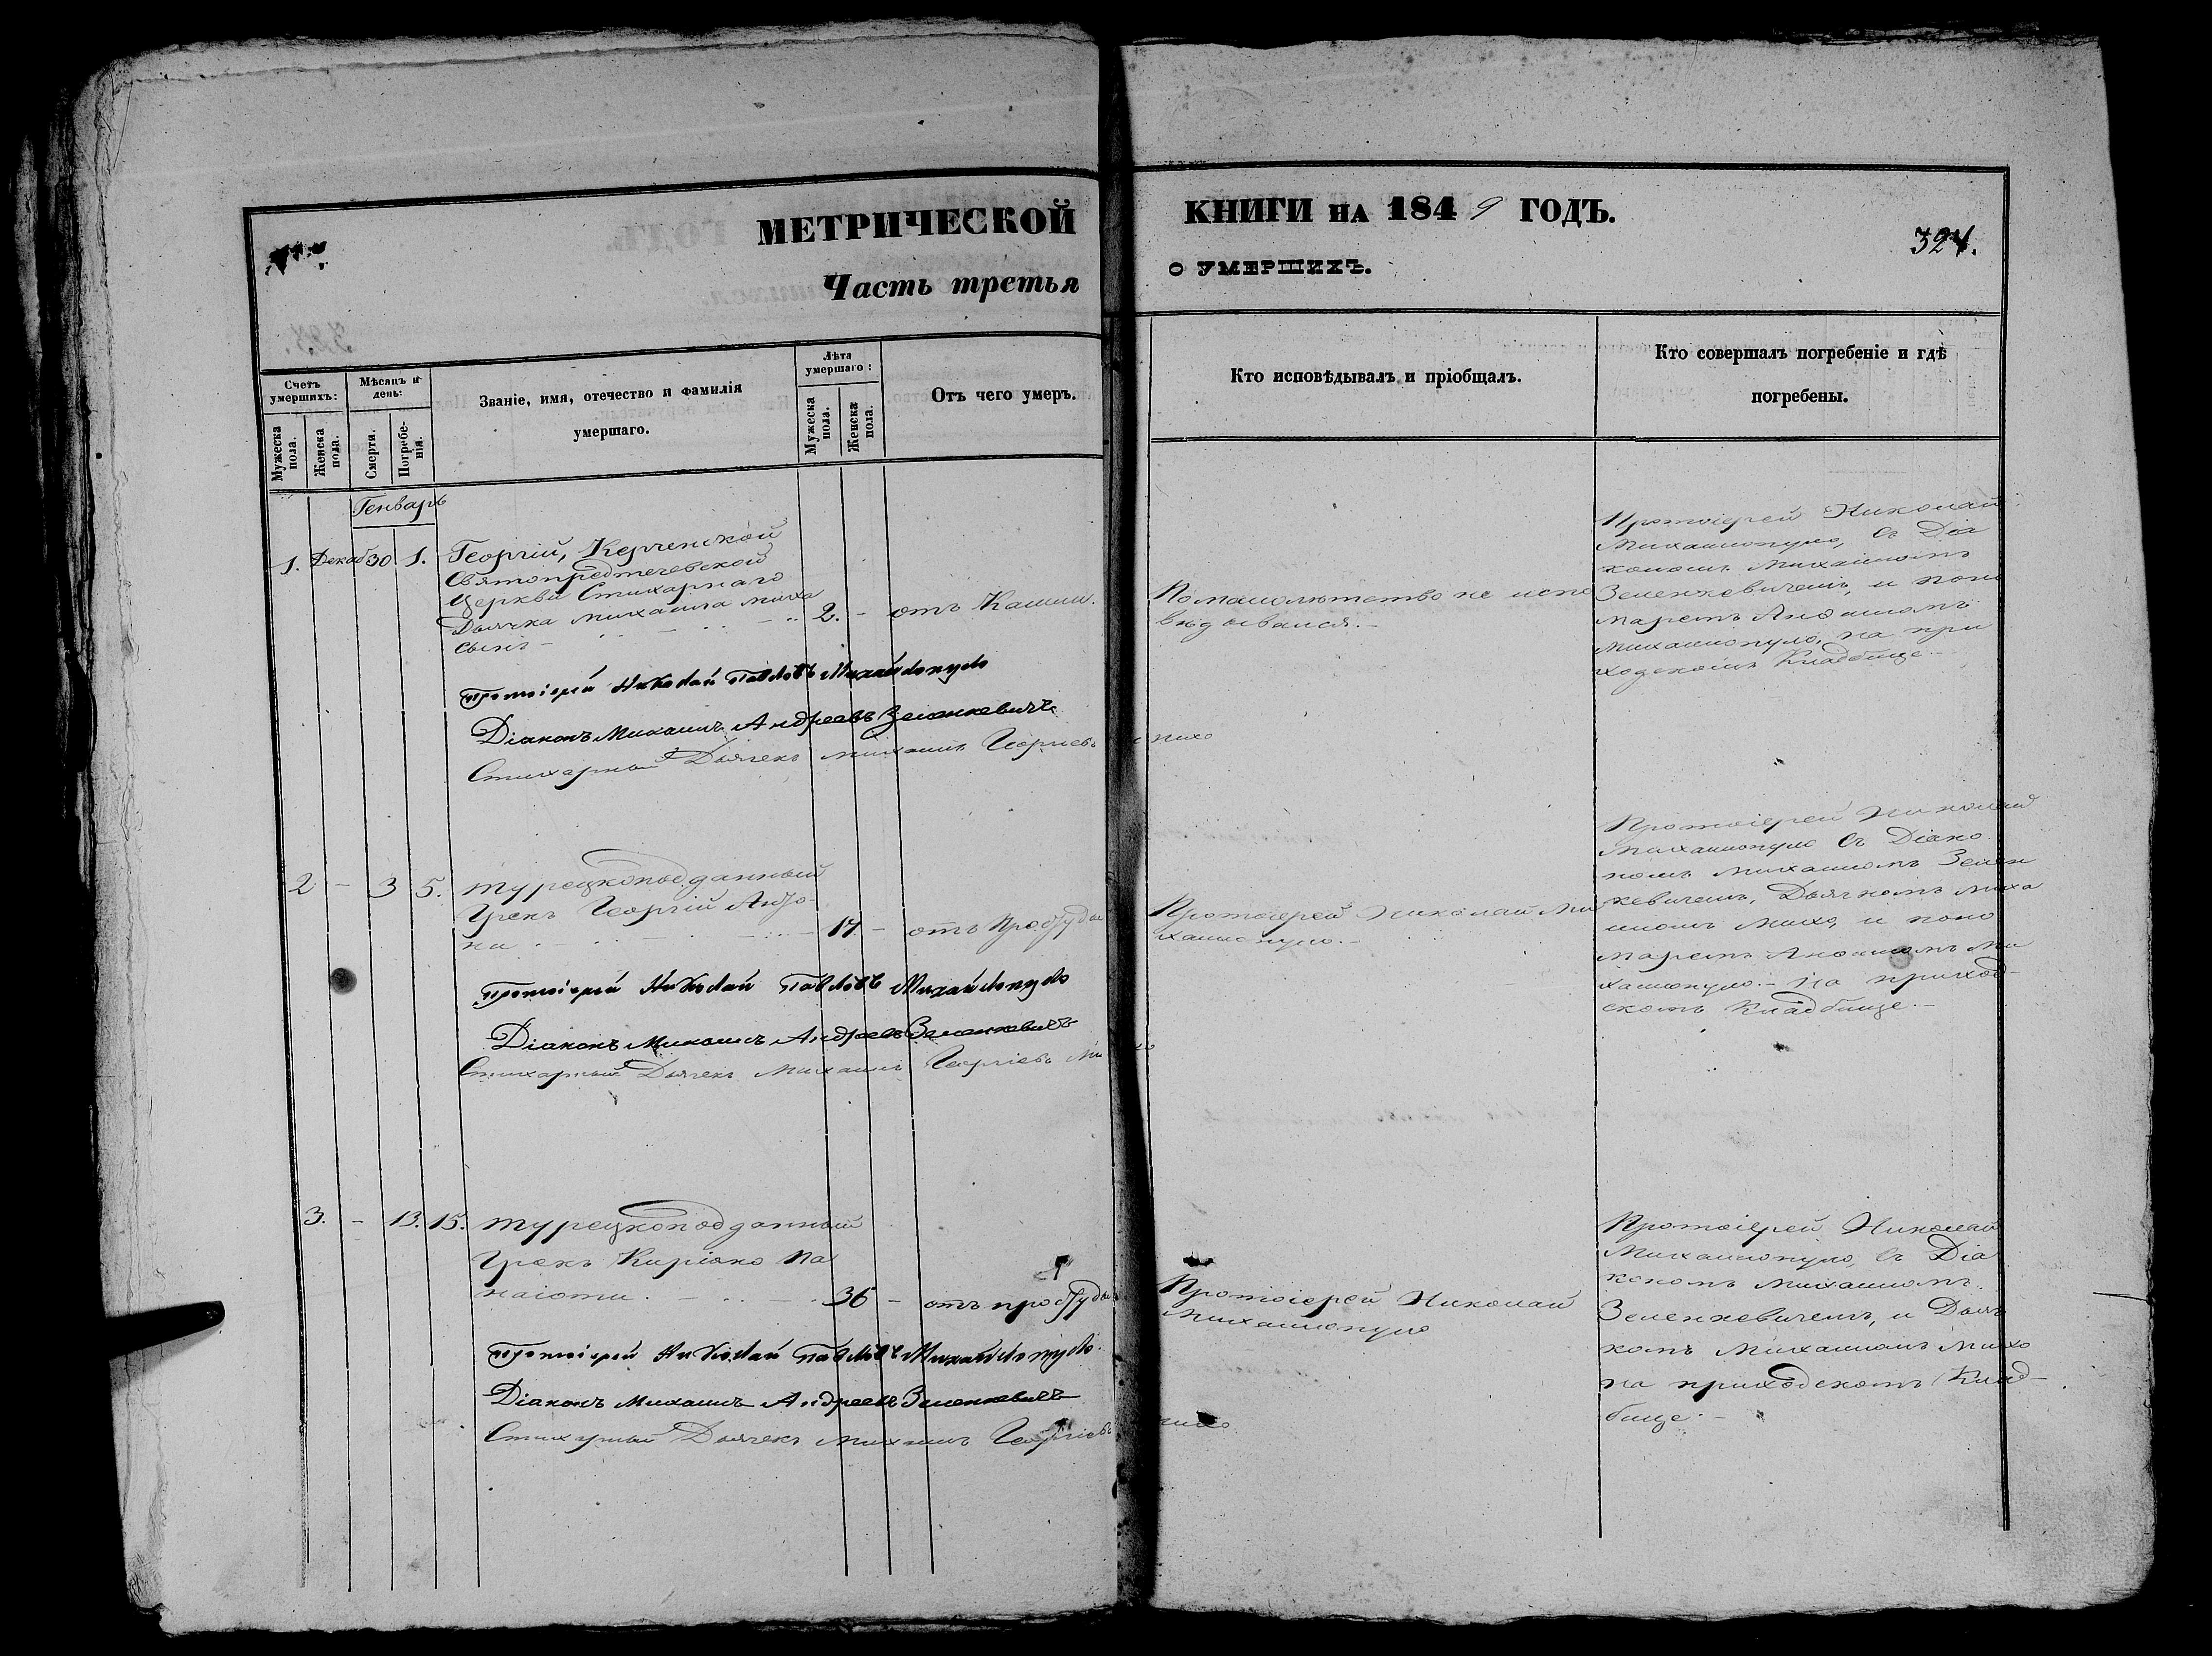 МЕТРИЧЕСКОЙ КНИГИ НА 1849 ГОДЪ.
324.
Часть третья о умершихъ.
Счетъ умершихъ:
Мужеска пола.
Женска пола.
Мѣсяцъ и день:
Смерти.
Погребенія.
Званіе, имя, отечество и фамилія
умершаго.
Лѣта умершаго:
Мужеска пола.
Женска пола.
Отъ чего умеръ.
Кто исповѣдывалъ и пріобщалъ.
Кто совершалъ погребеніе и гдѣ
погребены.
Генварь
1. Декаб 30 1.
Георгій, Керченской
Святопредтечевской
Церкви Стихарнаго
Дьячка Михаила Михо
сынъ
2. - отъ Кашля.
По малолѣтству не испо
вѣдывался.-
Протоіерей Николай
Михайлопуло, съ Діа
кономъ Михаиломъ
Зеленкевичемъ, и поно
маремъ
Михайлопуло, на при
ходскомъ Кладбище.-
Протоіерей Николай Павловъ Михайлопуло
Діаконъ Михаилъ Андреевъ Зеленкевичъ
Стихарный Дьячекъ Михаилъ Георгіевъ Михо
2 - 3 5.
Турецкоподданный
Грекъ Георгій Андо-
ни
17 - отъ Простуды
Протоіерей Николай Ми
хайлопуло.-
Протоіерей Николай
Михайлопуло съ Діако
номъ Михаиломъ Зелен
кевичемъ, Дьячкомъ Миха
иломъ Михо, и поно
маремъ Ми
хайлопуло.- На приход-
скомъ Кладбище.-
Протоіерей Николай Павловъ Михайлопуло
Діаконъ Михаилъ Андреевъ Зеленкевичъ
Стихарный Дьячекъ Михаилъ Георгіевъ Михо
3. - 13. 15.
Турецкоподданный
Грекъ Киріако Па
наіоти
36 - отъ простуды
Протоіерей Николай
Михайлопуло
Протоіерей Николай
Михайлопуло, съ Діа
кономъ Михаиломъ
Зеленкевичемъ, и Дьяч
комъ Михаиломъ Михо
на приходскомъ Клад-
бище.-
Протоіерей Николай Павловъ Михайлопуло.
Діаконъ Михаилъ Андреевъ Зеленкевичъ
Стихарный Дьячекъ Михаилъ Георгіевъ Михо